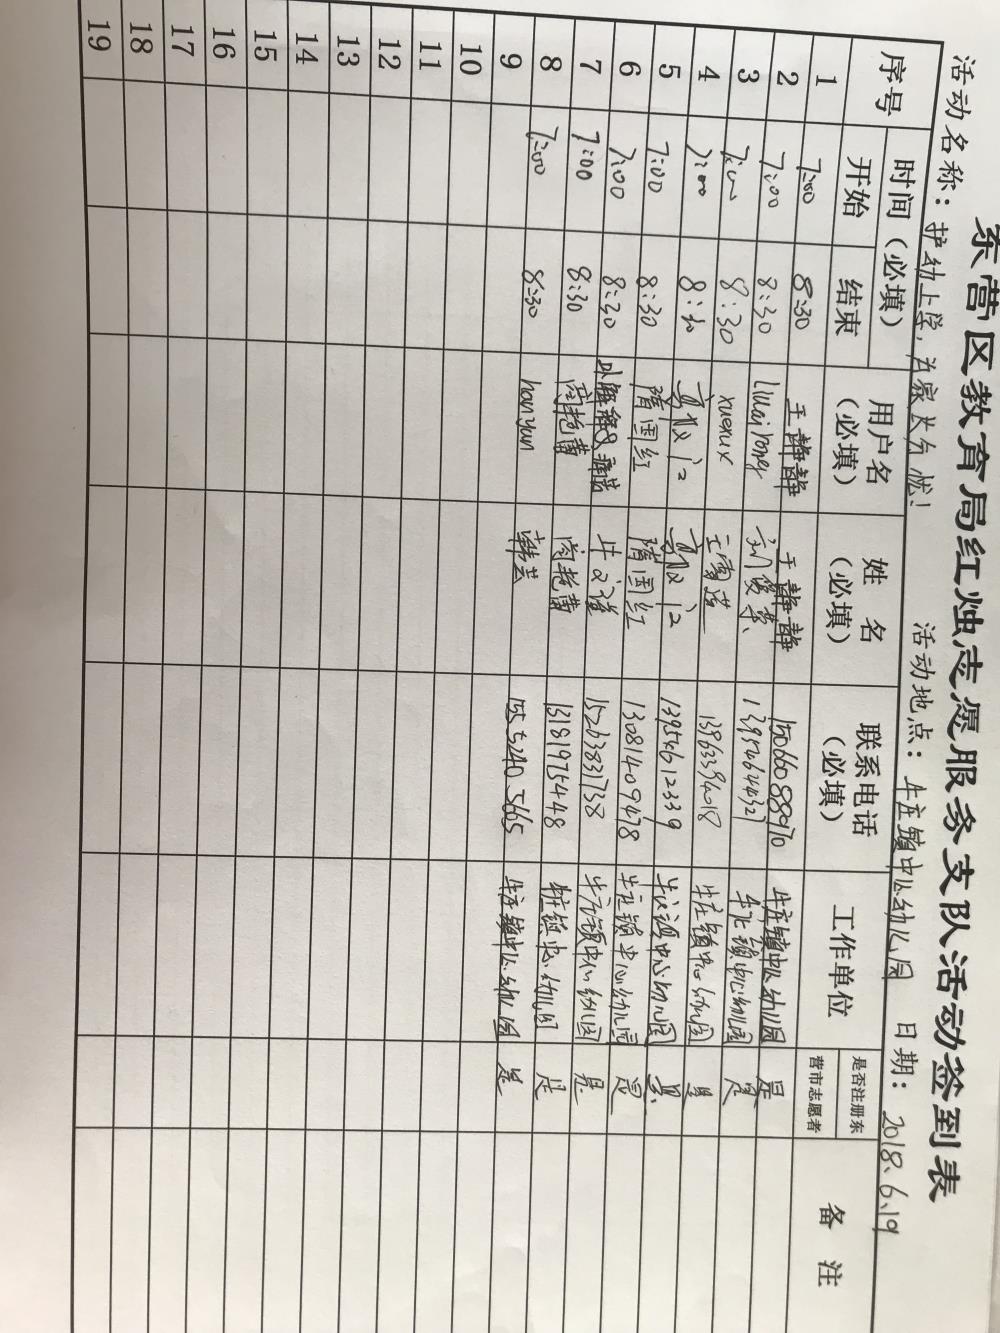 东营区教育局红烛志愿服务支队活动签到表
活动名称：护幼上学，为家长分忧！ 活动地点：牛庄镇中心幼儿园 日期：2018.6.19
序号 时间（必填） 用户名（必填） 姓名（必填） 联系电话（必填） 工作单位 是否注册东营市志愿者 备注
开始 结束
1 7:00 8:30 王静静 王静静 15066088070 牛庄镇中心幼儿园 是
2 7:00 8:30 13954644327 牛庄镇中心幼儿园 是
3 7:00 8:30 xuexux 13963394018 牛庄镇中心幼儿园 是
4 7:00 8:30 13954612339 中心幼儿园 是
5 7:00 8:30 隋国红 隋国红 13081409478 牛庄镇中心幼儿园 是
6 7:00 8:30 15263831738 牛庄镇中心幼儿园 是
7 7:00 8:30 阎艳蕾 阎艳蕾 13181975448 中心幼儿园 是
8 7:00 8:30 hanyun 韩芸 15552405665 牛庄镇中心幼儿园 是
9
10
11
12
13
14
15
16
17
18
19